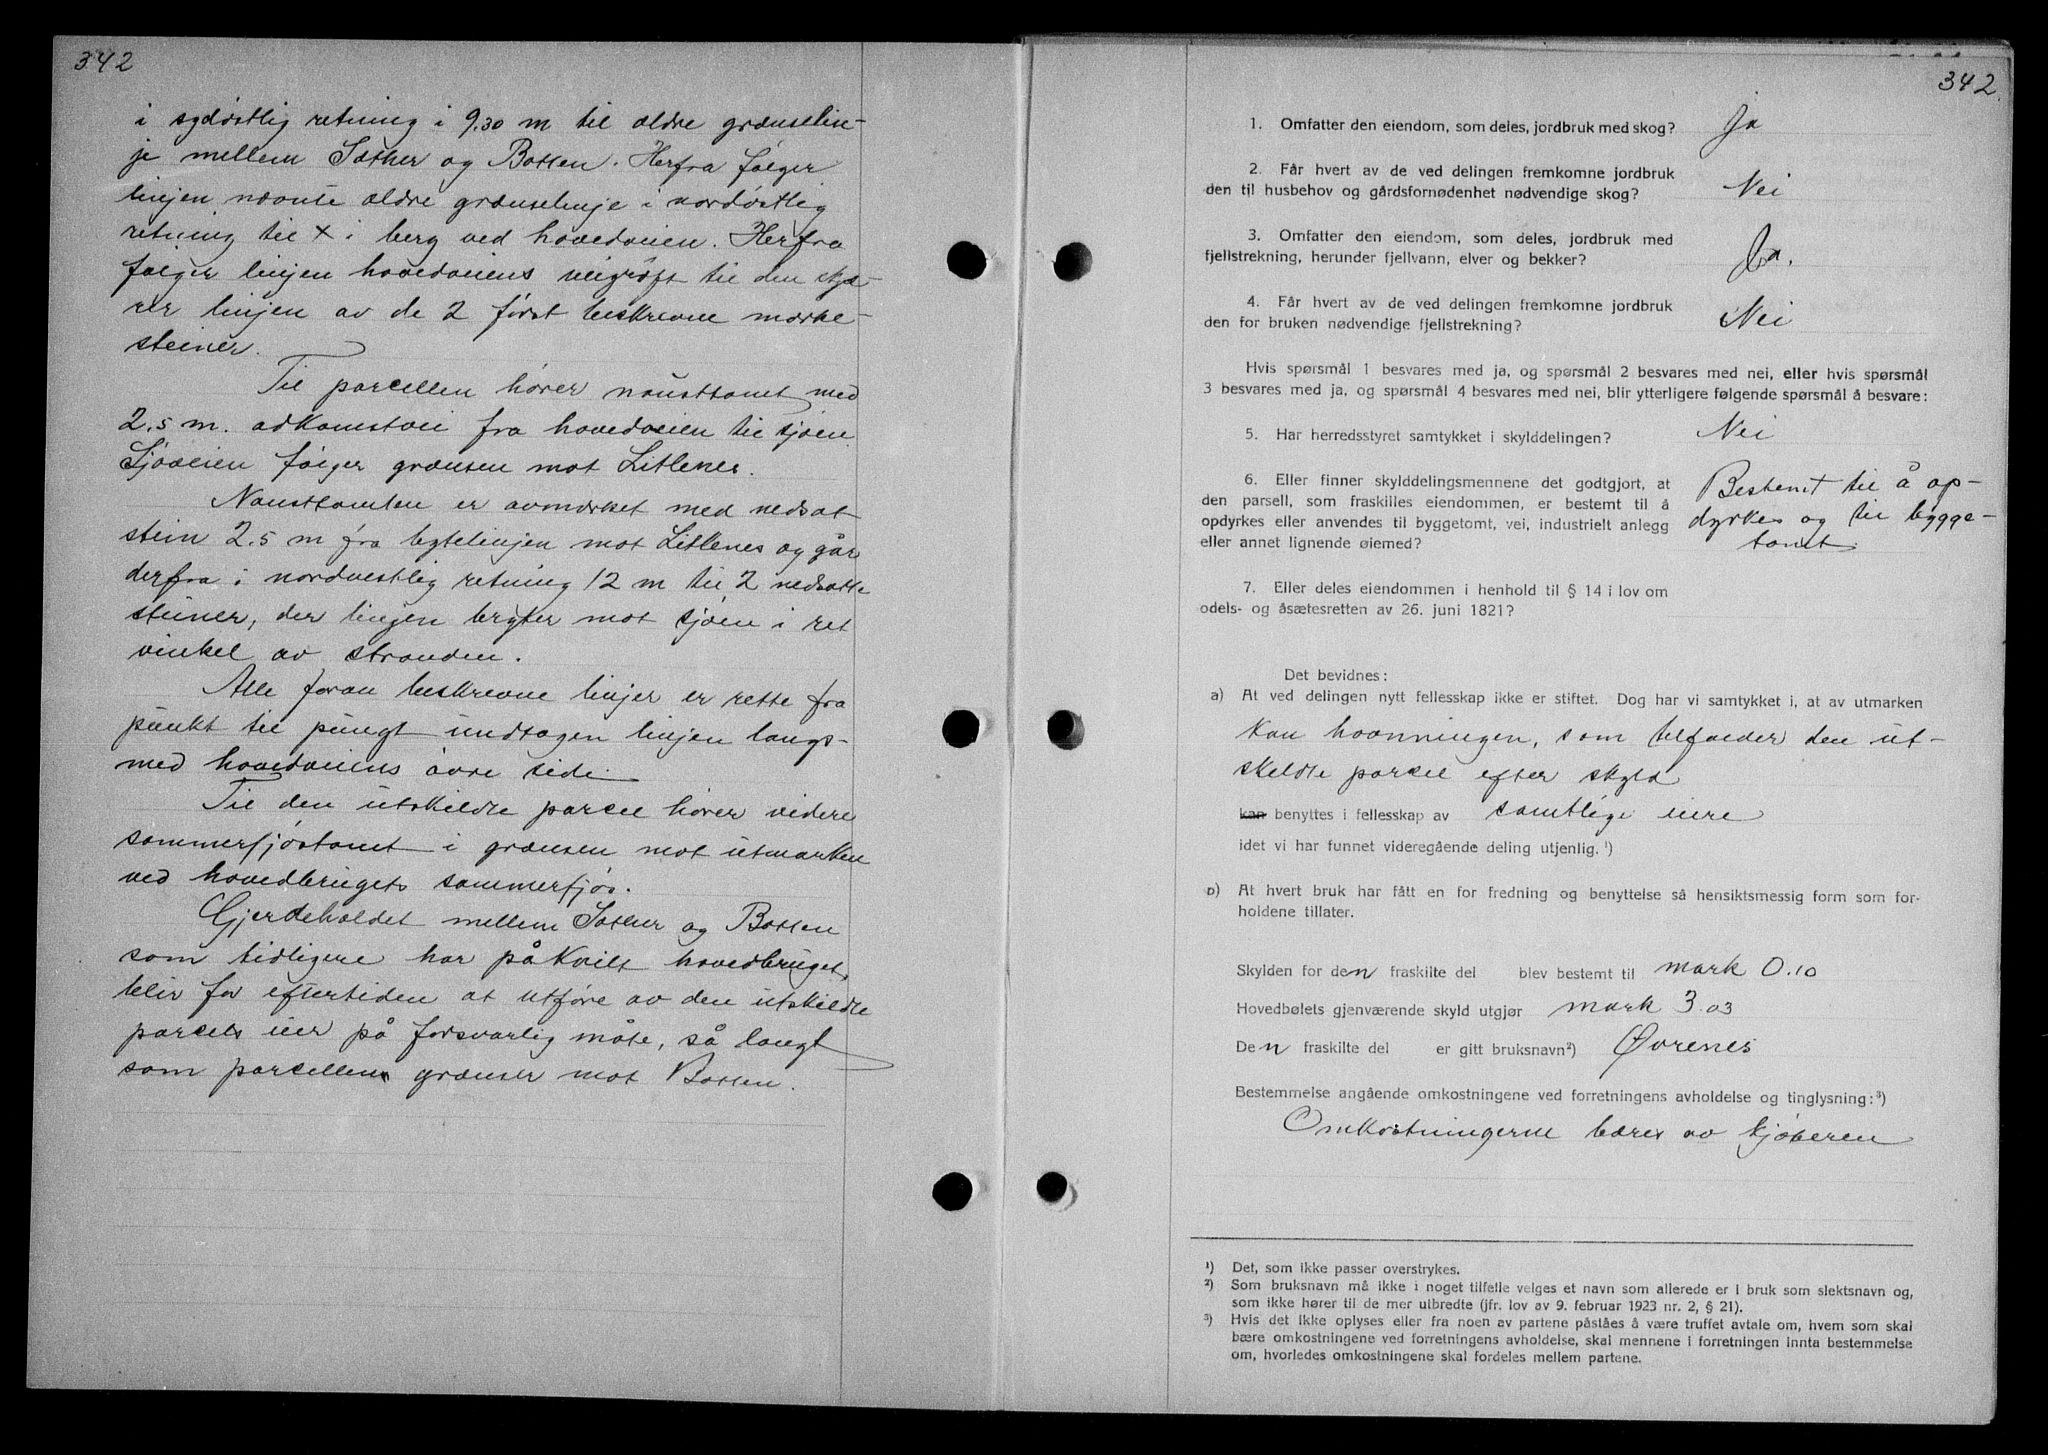 342
i sydöstlig retning i 9.30 m til ældre grænselin-
je mellem Sæther og Botten. Herfra følger
linjen nævnte ældre grænselinje i nordöstlig
retning til x i berg ved hovedveien. Herfra
følger linjen hovedveiens veigröft til den skjæ-
rer linjen av de 2 först beskrevne merke-
steiner.
Til parcellen hörer nausttomt med
2.5 m. adkomstvei fra hovedveien til sjöen
Sjöveien følger grænsen mot Litlenes.
Nausttomten er avmerket med nedsat
stein 2.5 m fra bytelinjen mot Litlenes og går
derfra i nordvestlig retning 12 m til 2 nedsatte
steiner, der linjen bryter mot sjöen i ret
vinkel av stranden.
Alle foran beskrevne linjer er rette fra
punkt til pungt undtagen linjen langs-
med hovedveiens övre side.
Til den utskildte parcel hörer videre
sommerfjöstomt i grænsen mot utmarken
ved hovedbrugets sommerfjös.
Gjerdeholdet mellem Sæther og Botten
som tidligere har påkvilt hovedbruget,
blir for eftertiden at utföre av den utskildte
parcels eier på forsvarlig måte, så langt
som parcellen grænser mot Botten.
342
1. Omfatter den eiendom, som deles, jordbruk med skog? Ja
2. Får hvert av de ved delingen fremkomne jordbruk
den til husbehov og gårdsfornødenhet nødvendige skog? Nei
3. Omfatter den eiendom, som deles, jordbruk med
fjellstrekning, herunder fjellvann, elver og bekker? Ja.
4. Får hvert av de ved delingen fremkomne jordbruk
den for bruken nødvendige fjellstrekning? Nei
Hvis spørsmål 1 besvares med ja, og spørsmål 2 besvares med nei, eller hvis spørsmål
3 besvares med ja, og spørsmål 4 besvares med nei, blir ytterligere følgende spørsmål å besvare:
5. Har herredsstyret samtykket i skylddelingen? Nei
6. Eller finner skylddelingsmennene det godtgjort, at
den parsell, som fraskilles eiendommen, er bestemt til å
opdyrkes eller anvendes til byggetomt, vei, industrielt anlegg
eller annet lignende øiemed?
Bestemt til å op-
dyrkes og til bygge-
tomt.
7. Eller deles eiendommen i henhold til § 14 i lov om
odels- og åsætesretten av 26. juni 1821?
Det bevidnes:
a) At ved delingen nytt fellesskap ikke er stiftet. Dog har vi samtykket i, at av utmarken
kan havnningen, som tilfalder den ut-
skildte parcel efter skyld
kan benyttes i fellesskap av samtlige eiere
idet vi har funnet videregående deling utjenlig.¹)
b) At hvert bruk har fått en for fredning og benyttelse så hensiktsmessig form som for-
holdene tillater.
Skylden for den fraskilte del blev bestemt til mark 0.10
Hovedbølets gjenværende skyld utgjør mark 3.03
Den fraskilte del er gitt bruksnavn²) Øvrenes
Bestemmelse angående omkostningene ved forretningens avholdelse og tinglysning:³)
Omkostningerne bæres av kjöberen
¹) Det, som ikke passer overstrykes.
²) Som bruksnavn må ikke i noget tilfelle velges et navn som allerede er i bruk som slektsnavn og,
som ikke hører til de mer utbredte (jfr. lov av 9. februar 1923 nr. 2, § 21).
³) Hvis det ikke oplyses eller fra noen av partene påstås å være truffet avtale om, hvem som skal
bære omkostningene ved forretningens avholdelse, skal mennene i forretningen innta bestemmelse
om, hvorledes omkostningene skal fordeles mellem partene.